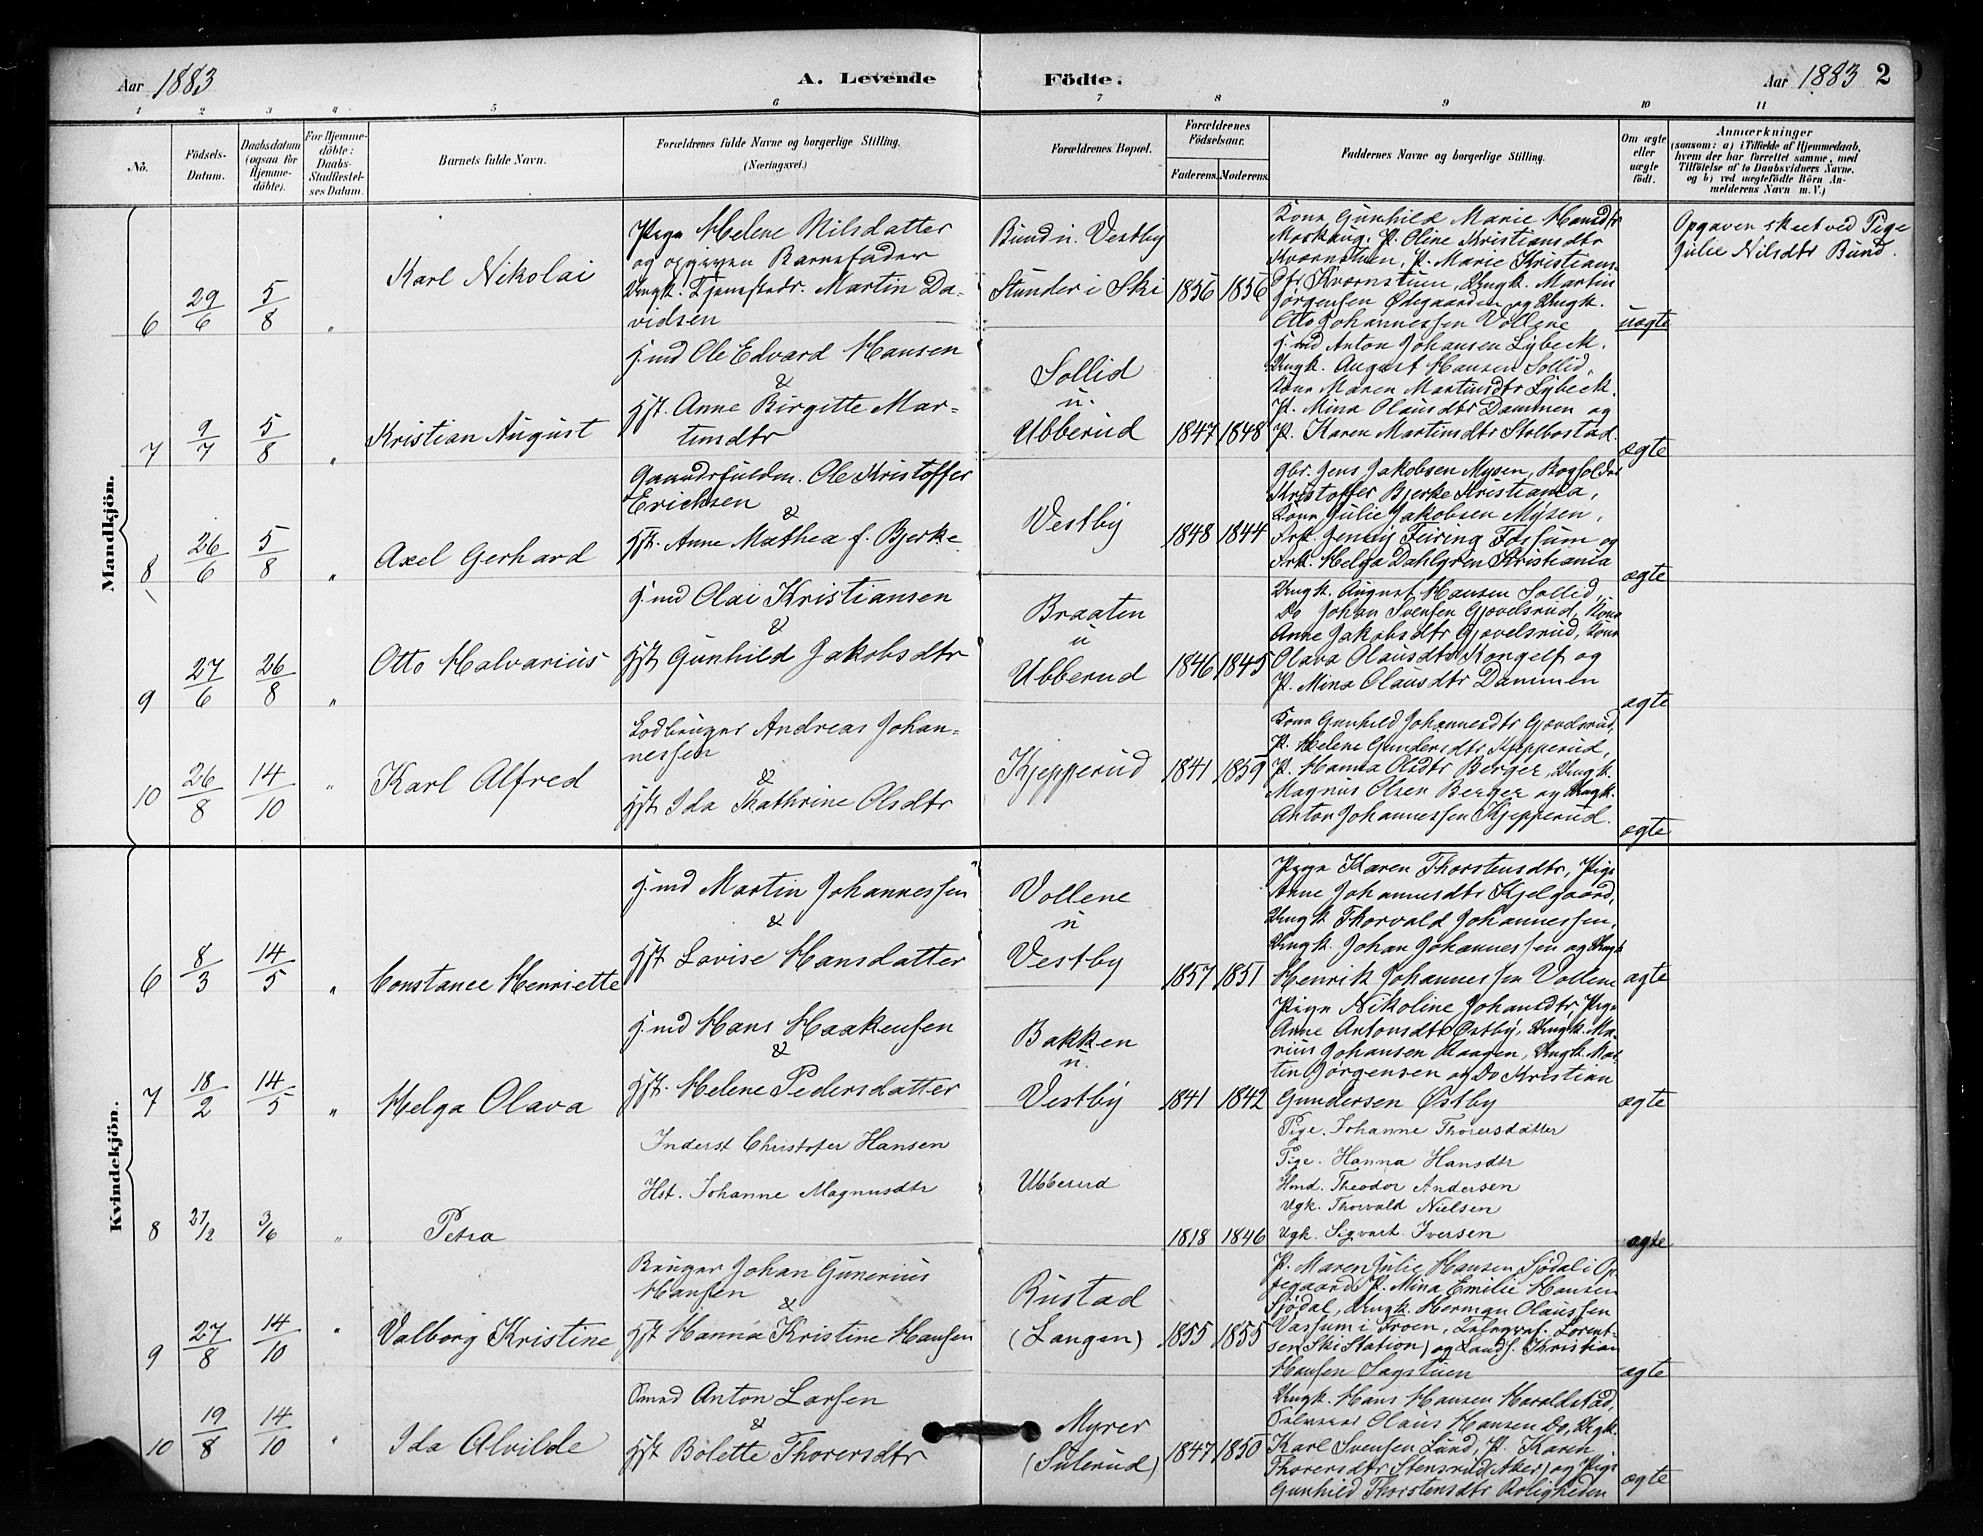 Aar 1883
A. Levende Födte.
Aar 1883 2
1 2 3 4 5 6 7 8 9 10 11
No.
Födsels-Datum.
Daabsdatum (ogsaa for Hjemme-döbte).
For Hjemme-döbte: Daabs-Stadfæstel-ses Datum.
Barnets fulde Navn.
Forældrenes fulde Navne og borgerlige Stilling. (Næringsvei.)
Forældrenes Bopæl.
Forældrenes Födselsaar.
Faderens. Moderens.
Faddernes Navne og borgerlige Stilling.
Om ægte eller uægte födt.
Anmærkninger
(saasom: a) i Tilfælde af Hjemmedaab, hvem der har forrettet samme, med Tilföielse af to Daabsvidners Navne, og b) ved uægtefödte Börn An-melderens Navn m. V.)
Mandkjön.
6 29/6 5/8 "
Karl Nikolai
Pige Helene Nilsdatter
og opgiven Barnefader
Ungk. Tjenestedr. Martin Da-
vidsen
Bund u. Vestby
Stunder i Ski
1856 1856
Kone Gunhild Marie Hansdtr
Moskaug, P. Oline Kristiansdtr
Kvernstuen, P. Marie Kristians-
dtr Kvernstuen, Ungk. Martin
Jörgensen Ødegaarden og Ungk.
Otto Johannessen Vollene
uægte
Opgaven skeet ved Pige
Julie Nilsdtr Bund.
7 9/7 5/8 "
Kristian August
H.md Ole Edvard Hansen
&
Hst. Anne Birgitte Mar-
tinsdtr
Sollid
u.
Ubberud
1847 1848
H.md Anton Johansen Lybeck.
Ungk. August Hansen Sollid,
Kone Maren Martinsdtr Lybeck.
P. Mina Olausdtr Dammen og
P. Karen Martinsdtr Stolbostad.
ægte
8 26/6 5/8 "
Axel Gerhard
Gaardsfuldm. Ole Kristoffer
Erichsen
&
Hst. Anne Mathea f. Bjerke
Vestby
1848 1844
Gbr. Jens Jakobsen Mysen, Bogholder
Kristoffer Bjerke Kristiania,
Kone Julie Jakobsen Mysen,
Frk. Jenny Feiring Fossum og
Frk. Helga Dahlgren Kristiania
ægte
9 27/6 26/8 "
Otto Halvarius
H.md Olai Kristiansen
&
Hst Gunhild Jakobsdtr
Braaten
u
Ubberud
1846 1845
Ungk. August Hansen Sollid,
Do Johan Svensen Gjøvelsrud, Kone
Anne Jakobsdtr Gjøvelsrud, Kone
Olava Olausdtr Kongelf og
P. Mina Olausdtr Dammen
ægte
10 26/8 14/10 "
Karl Alfred
Lodbruger Andreas Johan-
nessen
&
Hst Ida Kathrine Olsdtr
Kjepperud
1841 1859
Kone Gunhild Johannesdtr Gjøvelsrud,
P. Helene Gundersdtr Kjepperud,
P. Hanna Olsdtr Berger, Ungk.
Magnus Olsen Berger og Ungk.
Anton Johannessen Kjepperud.
ægte
Kvindekjön.
6 8/3 14/5 "
Constance Henriette
H.md Martin Johannessen
&
Hst Lovise Hansdatter
Vollene
u
Vestby
1857 1851
Pige Karen Thorstensdtr, Pige
Anne Johannesdtr Kjelgaard,
Ungk Thorvald Johannessen,
Ungk. Johan Johannessen og Ungk
Henrik Johannessen Vollene
ægte
7 18/2 14/5 "
Helga Olava
H.md Hans Haakensen
&
Hst. Helene Pedersdatter
Bakken
u.
Vestby
1841 1842
Pige Nikoline Johansdtr, Pige
Anne Antonsdtr Østby, Ungk. Ma-
rius Johansen Haagen, Ungk. Mar-
tin Jörgensen og Do Kristian
Gundersen Østby
ægte
8 27/12 3/6 "
Petra
Inderst Christofer Hansen
Hst. Johanne Magnusdtr
Ubberud
1818 1846
Pige. Johanne Thorersdatter
Pige. Hanna Hansdtr
Hmd. Theodor Andersen
Ugk. Thorvald Nielsen
Ugk. Sigvart Iversen
ægte
9 27/8 14/10 "
Valborg Kristine
Bruger Johan Gunerius
Hansen
&
Hst Hanna Kristine Hansen
Rustad
(Langen)
1855 1855
P. Maren Julie Hansen Sjödal i Op-
pegaard, P. Mina Emilie Hansen
Sjödal, Ungk. Herman Olaussen
Vassum i Froen, Telegraf. Lorent-
sen (Ski Station) og Landh. Kristian
Hansen Sagstuen
ægte
10 19/8 14/10 "
Ida Alvilde
Smed Anton Larsen
&
Hst Bolette Thorersdtr
Myrer
(Sulerud)
1847 1850
Ungk. Hans Hansen Haraldstad,
Olaus Hansen Do, Ungk.
Karl Svensen Lund, P. Karen
Thorersdtr Stensrud (Aker) og Pige
Gunhild Thorstensdtr Roligheden
ægte